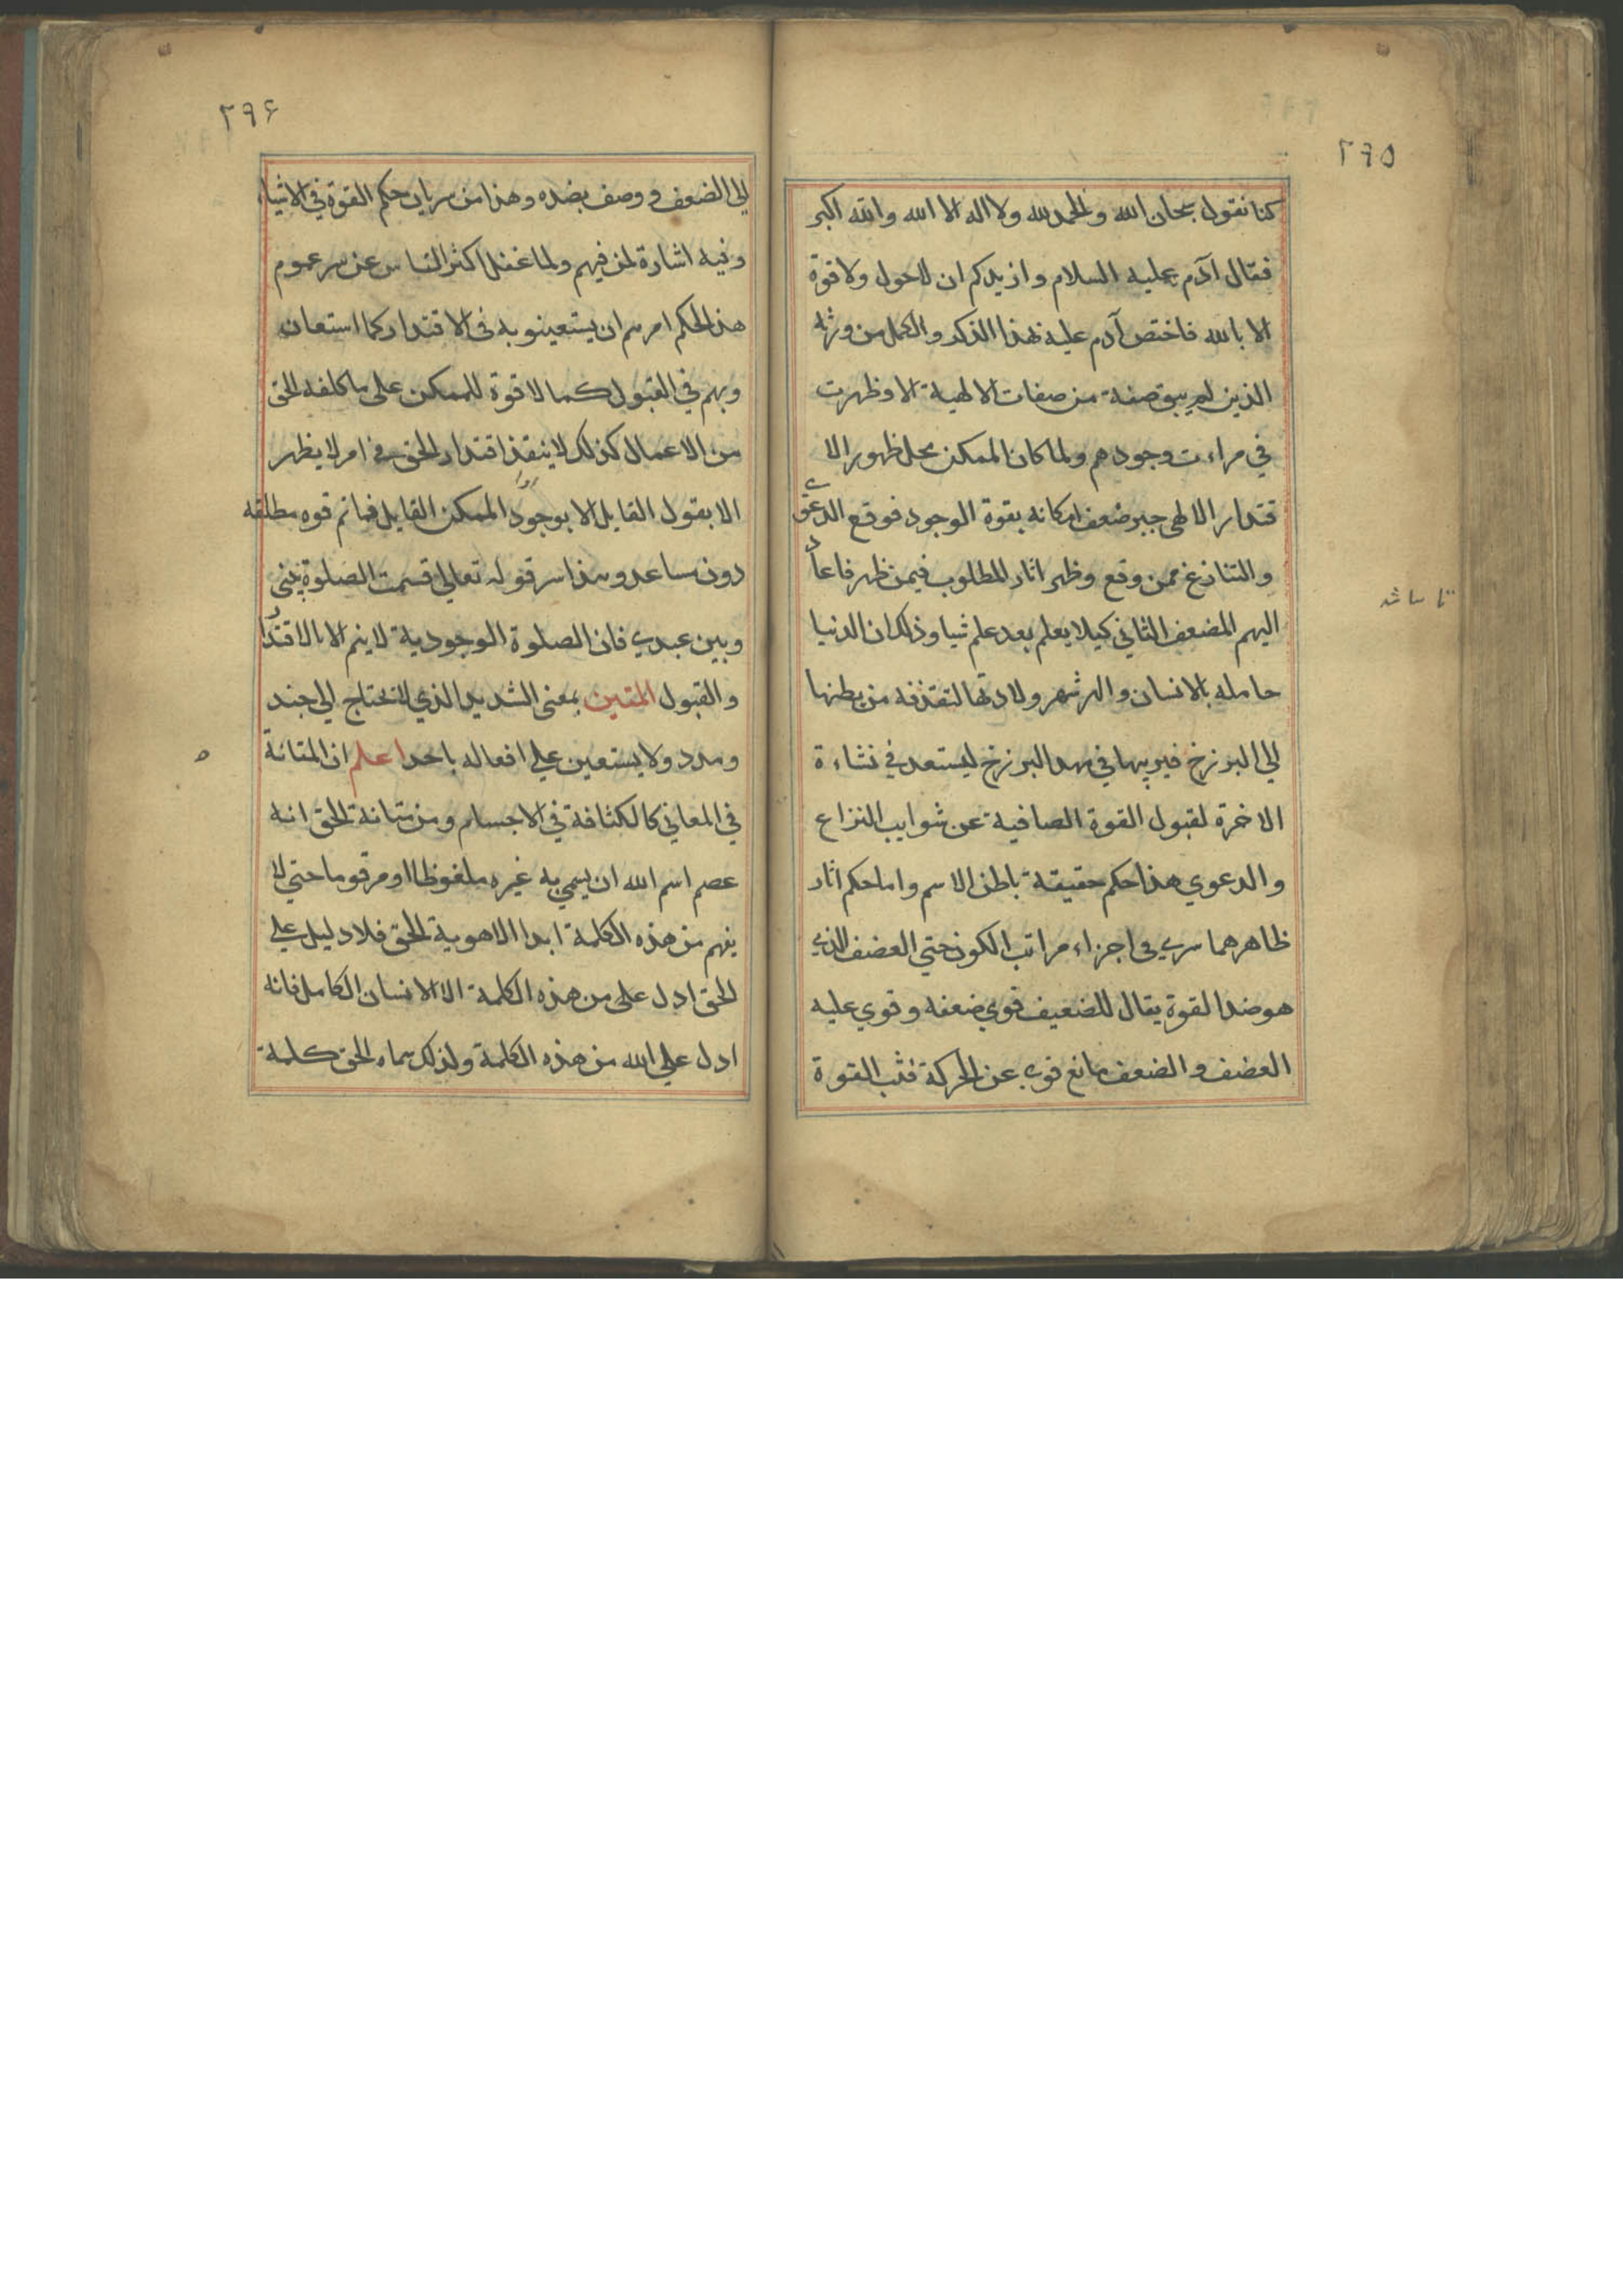 ٢٩٥
كنا نقول سبحان الله والحمد لله ولا اله الا الله والله اكبر
فقال آدم عليه السلام وازيدكم ان لاحول ولا قوة
الا بالله فاختص آدم عليه بهذا الذكر والكمل من ورثه
الذين لم يبق صفة من صفات الالهية الا وظهرت
في مراءت وجودهم ولما كان الممكن محل ظهور الا
قتدار الالهي جبر ضعف امكانه بقوة الوجود فوقع الدعوي
والتنازع ممن وقع وظهر اثار المطلوب فيمن ظهر فاعاد
اليهم المضعف الثاني كيلا يعلم بعد علم شيا وذلك ان الدنيا
حامله بالانسان والهر شهر ولادتها لتقذفه من بطنها
الي البرزخ فيربيها في مهد البرزخ ليستعد في نشاءة
الاخرة لقبول القوة الصافية عن شوايب النزاع
والدعوي هذا حكم حقيقة باطن الاسم واما حكم اثار
ظاهرهما سري في اجزاء مراتب الكون حتي الضعف الذي
هو ضد القوة يقال للضعيف قوي ضعفه وقوي عليه
الضعف والضعف مانع قوي عن الحركة فنسب القوة
٢٩۶
الي الضعف ووصف بضده وهذا من سريان حكم القوة في الاشياء
وفيه اشارة لمن فيهم ولما غفل اكثر الناس عن سر عموم
هذا الحكم امرهم ان يستعينوا به في الاقتدار كما استعان
وبهم في القبول كما لا قوة للممكن علي ما كلفه الحق
من الاعمال كذلك لا ينفذ اقتدار الحق في امر لا يظهر
الا بقول القايل الا بوجود الممكن القايل فما ثم قوه مطلقه
دون مساعد وهذا سر قوله تعالي قسمت الصلوة بيني
وبين عبدي فان الصلوة الوجودية لا يتم الا بالاقتدار
والقبول المتين بمعني الشديد الذي لا يحتاج الي جند
ومدد ولا يستعين علي افعاله باحد اعلم ان المتانة
في المعاني كالكثافة في الاجسام ومن متانة الحق انه
عصم اسم الله ان يسمي به غيره ملفوظا او مرقوما حتي لا
يفهم من هذه الكلمة ابدا الا هوية الحق فلا دليل علي
الحق ادل علي من هذه الكلمة الا الانسان الكامل فانه
ادل علي الله من هذه الكلمة ولذلك سماه الحق كلمة